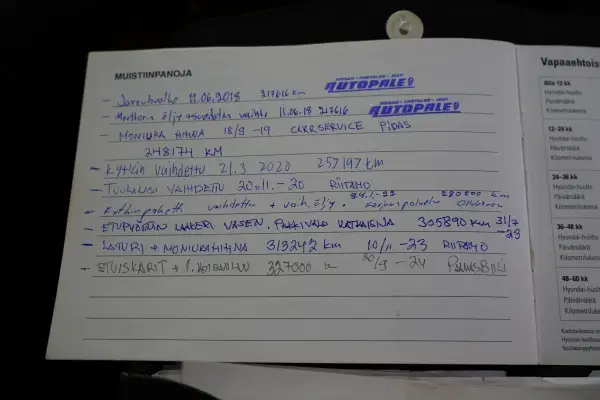 MUISTIINPANOJA
- Jarruhuolto 11.06.2018 217616 km
NISSAN - CHRYSLER - JEEP
AUTOPALE
- Moottorin öljy + suodatin vaihto 11.06.18 217616
NISSAN - CHRYSLER - JEEP
AUTOPALE
- MONIURA HIHNA 18/9 -19 CARRSERVICE PIDAS
248174 KM
- KYTKIN VAIHDETTU 21.3 2020 257197 km
- TUULILASI VAIHDETTU 20.11.-20 RIITAHO
- Kytkinpaketti vaihdettu + vaih.öljy. 24.1.-22 280800 km
- ETUPYÖRÄN LAAKERI VASEN, PAKIVALO KATKAISIJA 305890 KM 31/7
-23
- LATURI + MONIURAHIHNA 313242 km 10/11 -23 RIITAHO
- ETUISKARIT + 327000 20/9 -24
Vapaaehtois
Alle 12 kk
Hyundai-huolto
Päivämäärä
Kilometrilukema
12-24 kk
Hyundai-huolto
Päivämäärä
Kilometrilukema
24-36 kk
Hyundai-huolto
Päivämäärä
Kilometrilukema
36-48 kk
Hyundai-huolto
Päivämäärä
Kilometriluke
48-60 kk
Hyundai-huolt
Päivämäärä
Kilometriluke